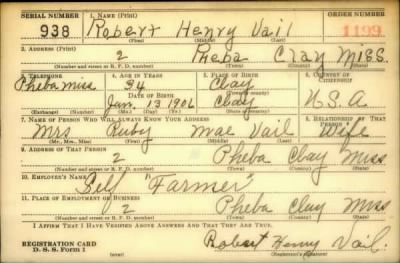 SERIAL NUMBER 1. NAME (Print) ORDER NUMBER
938 Robert Henry Vail 1199
(First) (Middle) (Last)
2. ADDRESS (Print)
2 Pheba Clay Miss.
(Number and street or R. F. D. number) (Town) (County) (State)
3. TELEPHONE 4. AGE IN YEARS 5. PLACE OF BIRTH 6. COUNTRY OF CITIZENSHIP
Pheba Miss 34 Clay
DATE OF BIRTH
Jan. 13 1906 Clay U.S.A
(Exchange) (Number) (Mo.) (Day) (Yr.) (State or country)
7. NAME OF PERSON WHO WILL ALWAYS KNOW YOUR ADDRESS 8. RELATIONSHIP OF THAT PERSON
Mrs Ruby Mae Vail Wife
(Mr., Mrs., Miss) (First) (Middle) (Last)
9. ADDRESS OF THAT PERSON
2 Pheba Clay Miss
(Number and street or R. F. D. number) (Town) (County) (State)
10. EMPLOYER'S NAME
Self "Farmer"
11. PLACE OF EMPLOYMENT OR BUSINESS
2 Pheba Clay Miss
(Number and street or R. F. D. number) (Town) (County) (State)
I AFFIRM THAT I HAVE VERIFIED ABOVE ANSWERS AND THAT THEY ARE TRUE.
REGISTRATION CARD
D. S. S. Form 1
Robert Henry Vail.
(Registrant's signature)